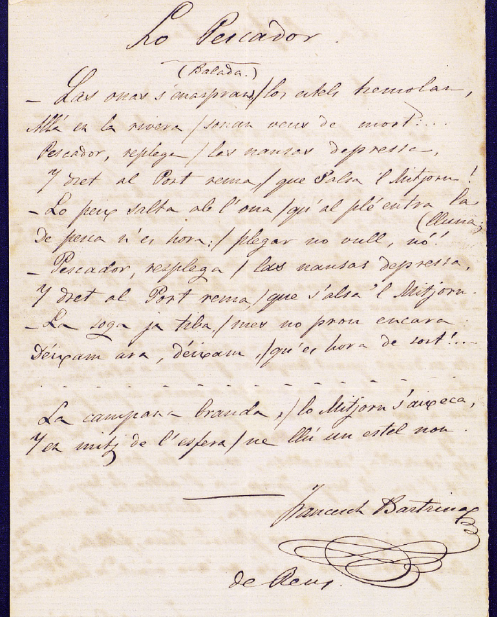 Lo Pescador.
(Balada.)
– Las onas s'encrespan / los estels tremolan,
Allá en la rivera / sonan veus de mort....
Pescador, replega / las nansas depressa,
Y dret al Port rema / que s'alsa 'l Mitjorn!
– Lo peix salta ab l'ona / qu' al plé entra la
(lluna;
De pesca n'es hora; / plegar no vull, nó!!
– Pescador, resplega / las nansas depressa,
Y dret al Port rema, / que s'alsa 'l Mitjorn
– La soga ja tiba / mes no prou encara
Déixam ara, déixam, / qu' es hora de sort!...
La campana branda, / lo Mitjorn s'aixeca,
Y en mitj de l'esfera / ne llú un estel nou.
Francesch Bartrina
de Reus.